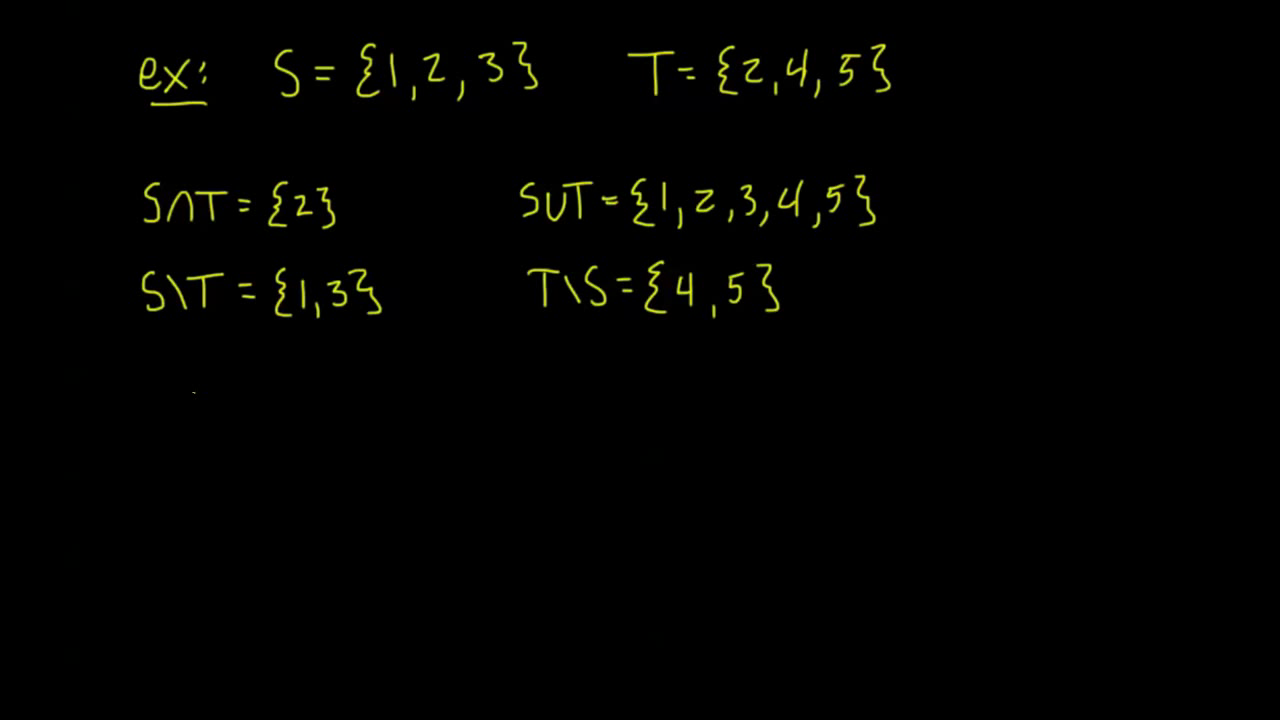 ex: S = {1, 2, 3} T = {2, 4, 5}
S∩T = {2} S∪T = {1, 2, 3, 4, 5}
S\T = {1, 3} T\S = {4, 5}